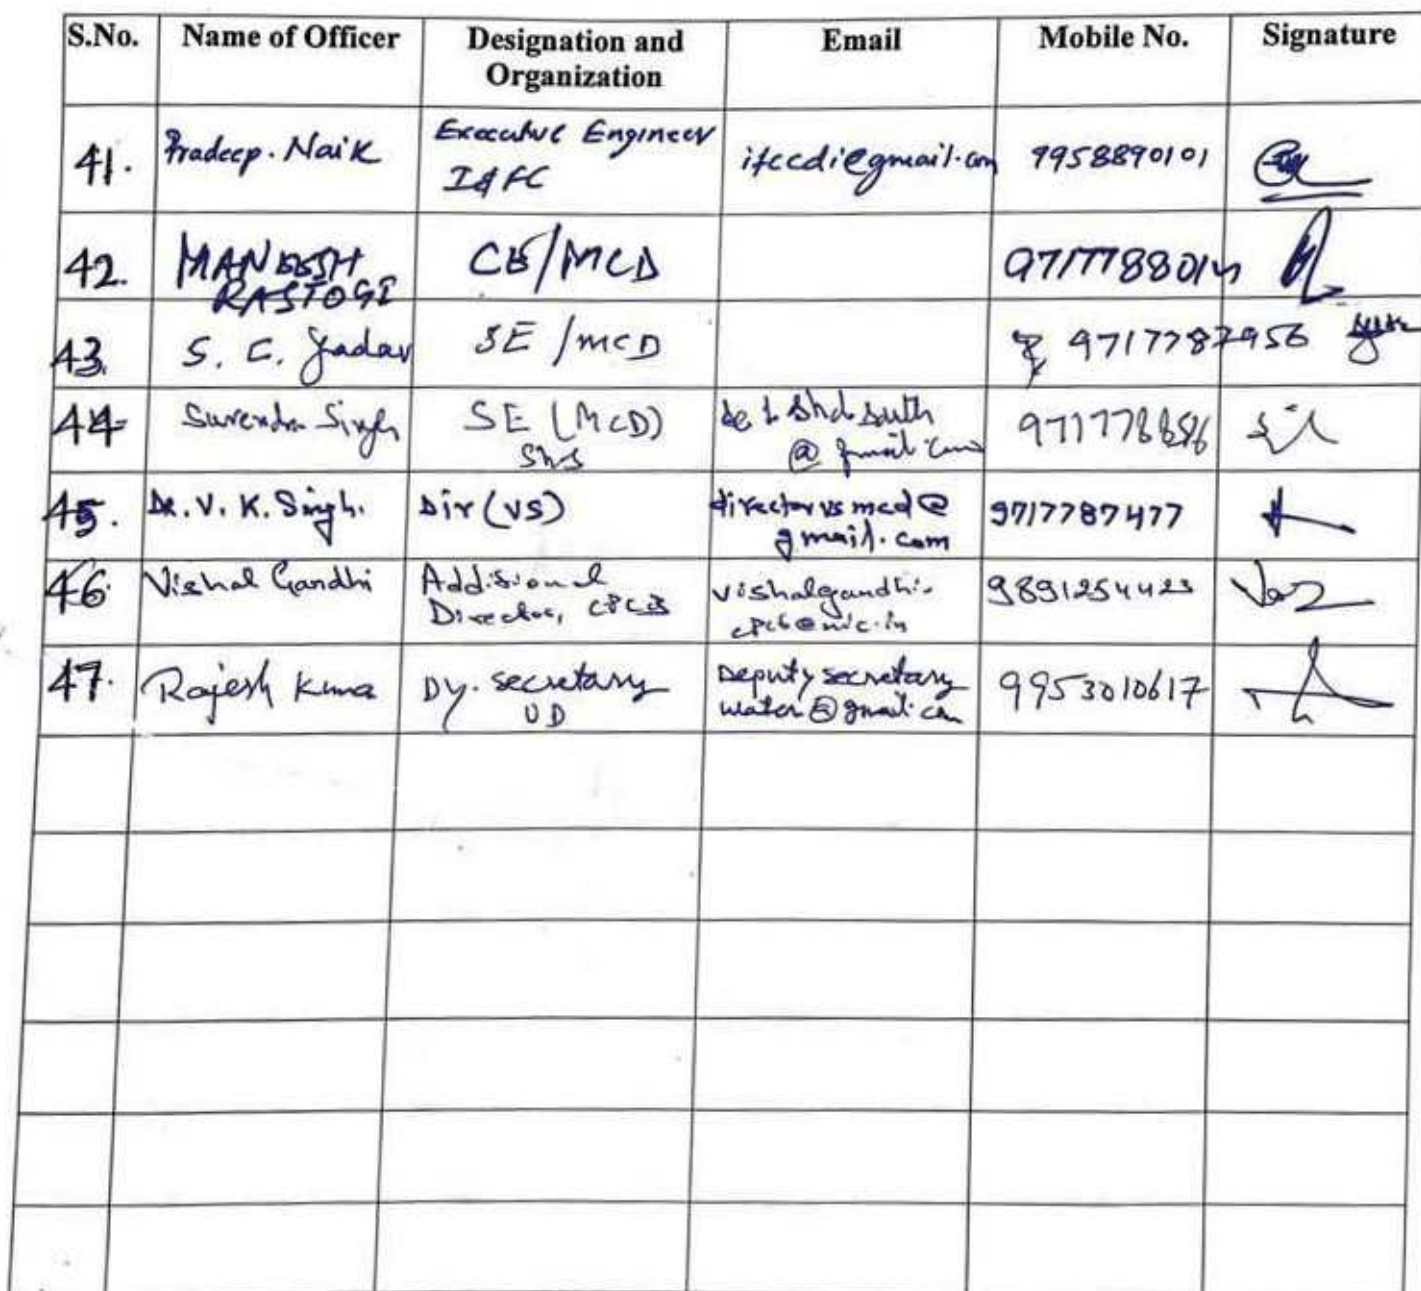 S.No. Name of Officer Designation and Organization Email Mobile No. Signature
41. Pradeep. Naik Executive Engineer I&FC ifccdi@gmail.com 9958890101
42. MANEESH RASTOGI CE/MCD
43. S. C. Yadav SE/MCD 9717787956
44 Surendra Singh SE (MCD) ShS @gmail.com
45. Dr. V. K. Singh. Dir (VS) directorvsmcd@gmail.com 9717787477
46. Vishal Gandhi Additional Director, CPCB vishalgandhi.cpcb@nic.in 9891254423
47. Rajesh Kumar Dy. secretary UD Deputysecretarywater@gmail.com 9953010617